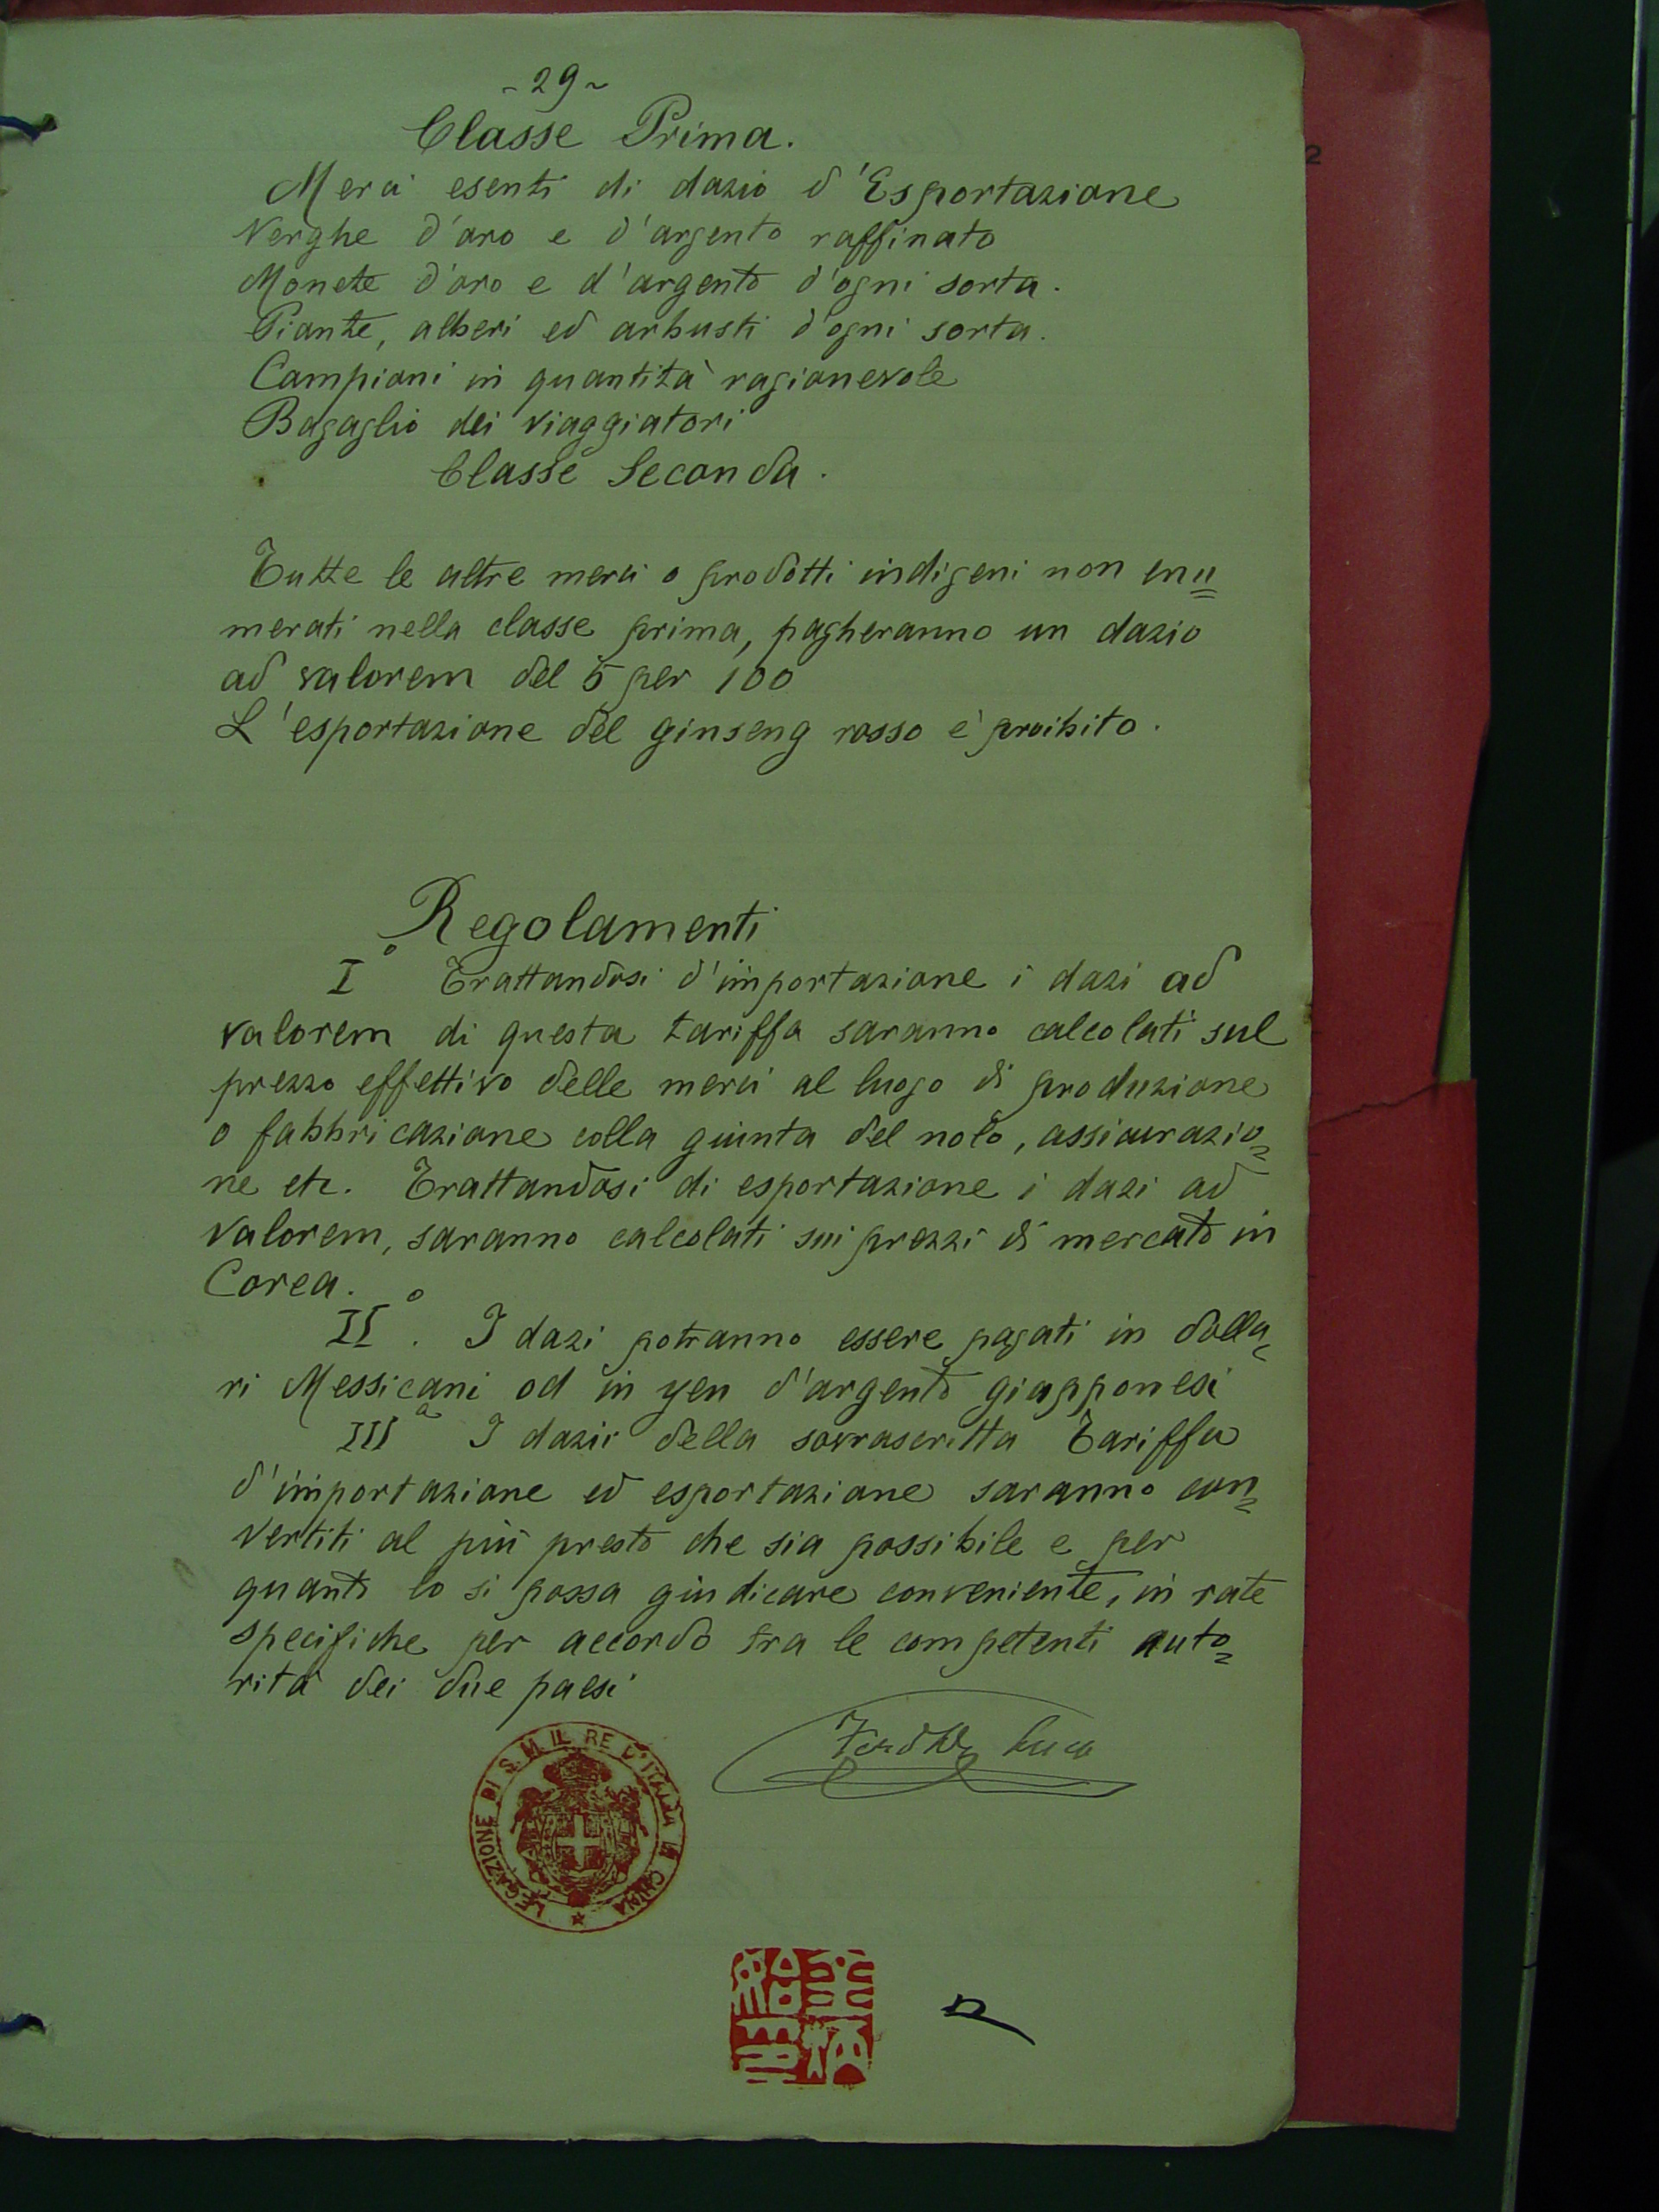 - 29 ~
Classe Prima.
Merci esenti di dazio d'Esportazione
Verghe d'oro e d'argento raffinato
Monete d'oro e d'argento d'ogni sorta.
Piante, alberi ed arbusti d'ogni sorta.
Campioni in quantità ragionevole
Bagaglio dei viaggiatori
Classe Seconda.
Tutte le altre merci o prodotti indigeni non enu=
merati nella classe prima, pagheranno un dazio
ad valorem del 5 per 100
L'esportazione del ginseng rosso è proibito.
Regolamenti
I° Trattandosi d'importazione i dazi ad
valorem di questa tariffa saranno calcolati sul
prezzo effettivo delle merci al luogo di produzione
o fabbricazione colla giunta del nolo, assicurazio=
ne etc. Trattandosi di esportazione i dazi ad
valorem, saranno calcolati sui prezzi di mercato in
Corea.
II°. I dazi potranno essere pagati in dolla=
ri Messicani od in yen d'argento giapponesi
III° I dazii della sovrascritta Tariffa
d'importazione ed esportazione saranno con=
vertiti al più presto che sia possibile e per
quanto lo si possa giudicare conveniente, in rate
specifiche per accordo tra le competenti auto=
rità dei due paesi
LEGAZIONE DI S.M. IL RE D'ITALIA IN CHINA
2